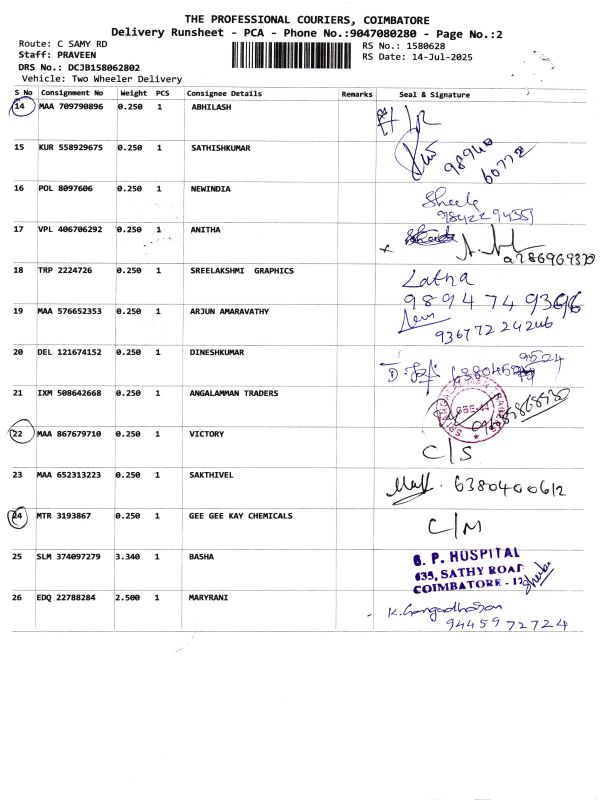 THE PROFESSIONAL COURIERS, COIMBATORE
Delivery Runsheet - PCA - Phone No.:9047080280 - Page No.:2
Route: C SAMY RD
RS No.: 1580628
Staff: PRAVEEN
RS Date: 14-Jul-2025
DRS No.: DCJB158062802
Vehicle: Two Wheeler Delivery
S No Consignment No Weight PCS Consignee Details Remarks Seal & Signature
14 MAA 709790896 0.250 1 ABHILASH
15 KUR 558929675 0.250 1 SATHISHKUMAR 98940
60772
16 POL 8097606 0.250 1 NEWINDIA Sheela
9842294551
17 VPL 406706292 0.250 1 ANITHA
18 TRP 2224726 0.250 1 SREELAKSHMI GRAPHICS Latha
19 MAA 576652353 0.250 1 ARJUN AMARAVATHY
20 DEL 121674152 0.250 1 DINESHKUMAR
21 IXM 508642668 0.250 1 ANGALAMMAN TRADERS
22 MAA 867679710 0.250 1 VICTORY C/S
23 MAA 652313223 0.250 1 SAKTHIVEL 6380400612
24 MTR 3193867 0.250 1 GEE GEE KAY CHEMICALS C/M
25 SLM 374097279 3.340 1 BASHA G. P. HOSPITAL
635, SATHY ROAD
COIMBATORE - 12
26 EDQ 22788284 2.500 1 MARYRANI K. Gangadharan
9445972724